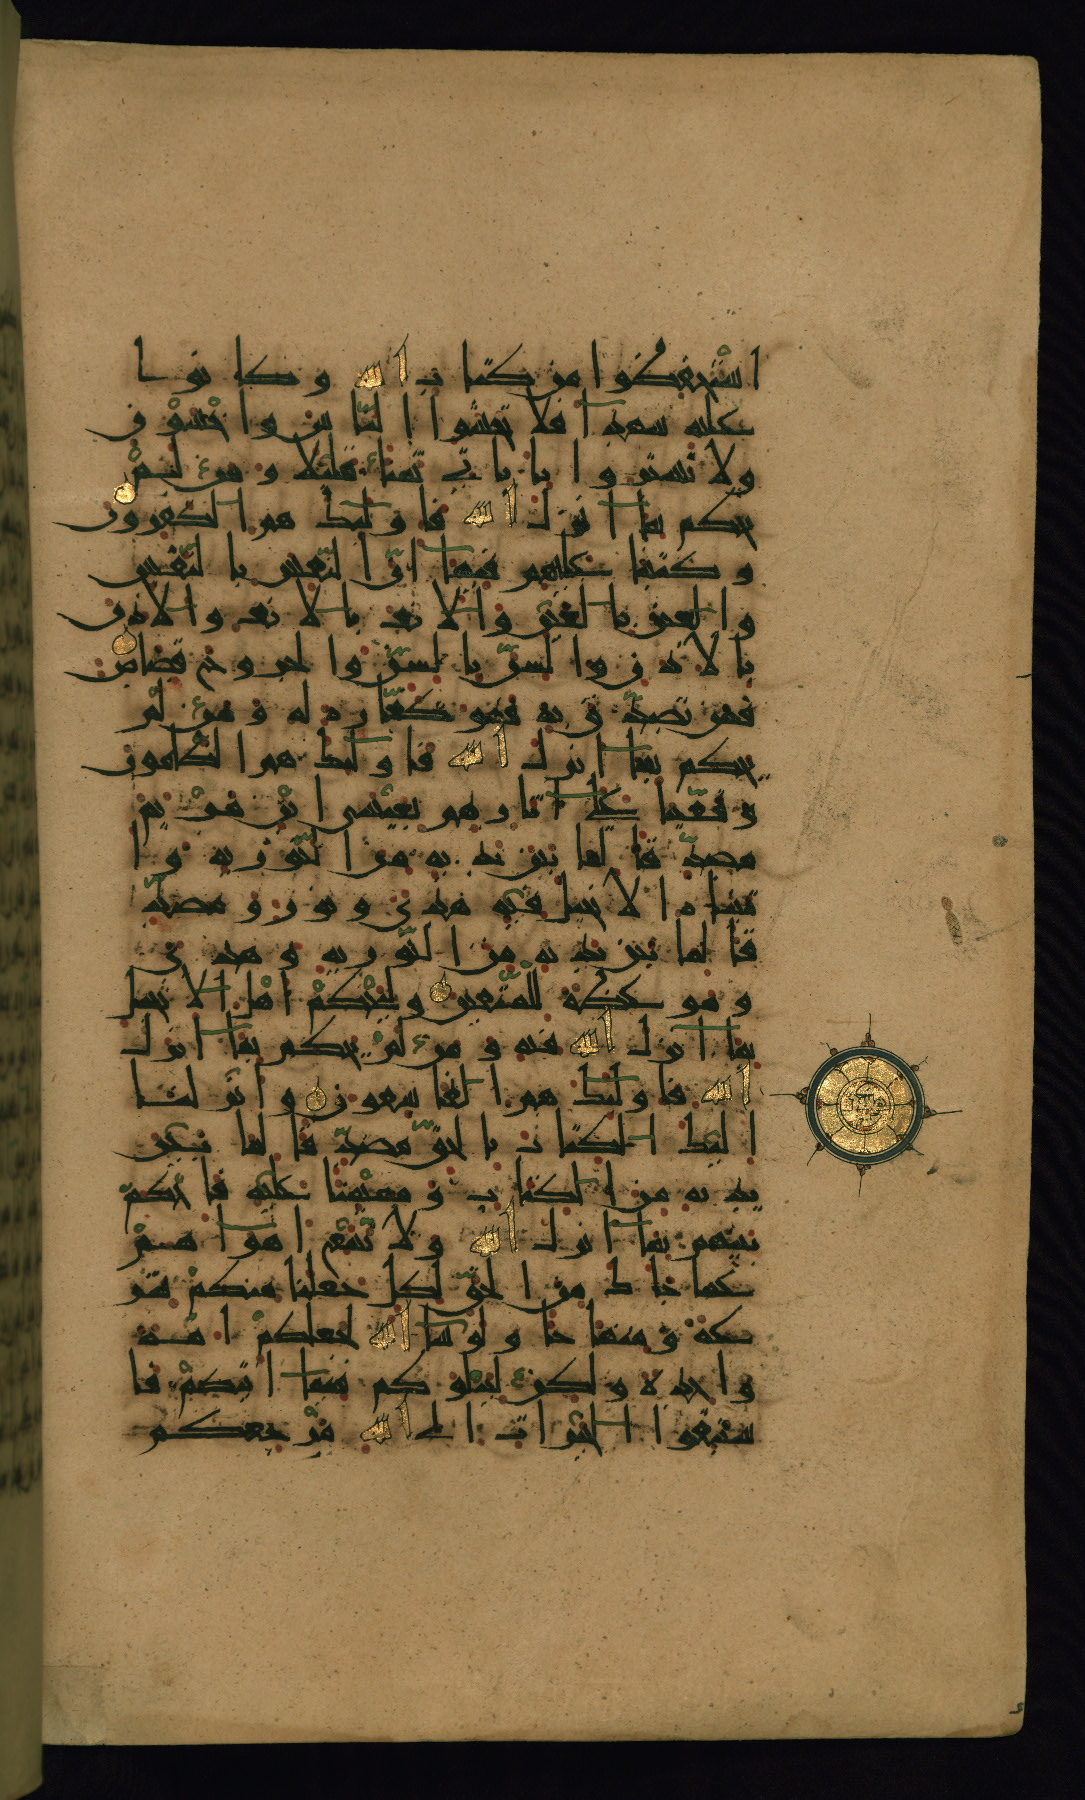 استحفظوا من كتاب الله وكانوا
عليه شهدا فلا تخشوا الناس واخشون
ولا تشتروا باياتي ثمنا قليلا ومن لم
يحكم بما انزل الله فاولئك هم الكفرون
وكتبنا عليهم فيها ان النفس بالنفس
والعين بالعين والانف بالانف والاذن
بالاذن والسن بالسن والجروح قصاص
فمن تصدق به فهو كفارة له ومن لم
يحكم بما انزل الله فاولئك هم الظلمون
وقفينا على اثارهم بعيسى ابن مريم
مصدقا لما بين يديه من التورية وا
تيناه الانجيل فيه هدى ونور ومصد
قا لما بين يديه من التورية وهدى
وموعظة للمتقين وليحكم اهل الانجيل
بما انزل الله فيه ومن لم يحكم بما انزل
الله فاولئك هم الفاسقون وانزلنا
اليك الكتاب بالحق مصدقا لما بين
يديه من الكتاب ومهيمنا عليه فاحكم
بينهم بما انزل الله ولا تتبع اهواهم
عما جاك من الحق لكل جعلنا منكم شر
عة ومنهاجا ولو شا الله لجعلكم امة
واحدة ولكن ليبلوكم فيما اتيكم فا
ستبقوا الخيرات الى الله مرجعكم